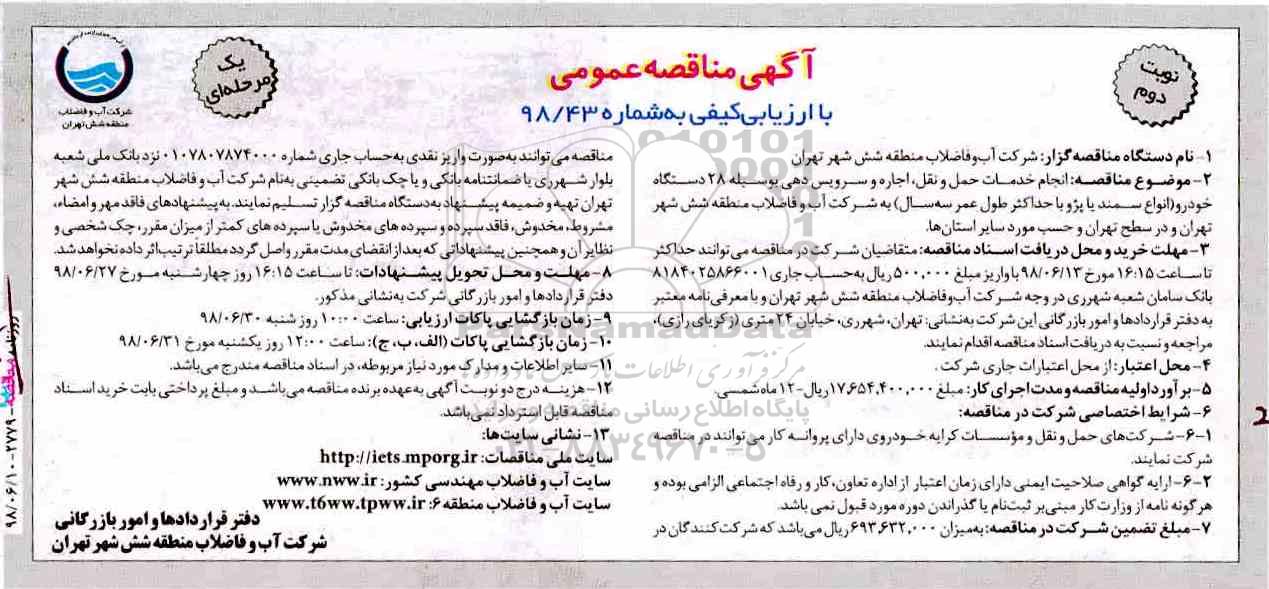 آگهی مناقصه عمومی
با ارزیابی کیفی به شماره ۹۸/۴۳
نوبت
دوم
یک
مرحله‌ای
شرکت آب و فاضلاب
منطقه شش تهران
۱- نام دستگاه مناقصه گزار: شرکت آب وفاضلاب منطقه شش شهر تهران
۲- موضوع مناقصه: انجام خدمات حمل و نقل، اجاره و سرویس دهی بوسیله ۲۸ دستگاه
خودرو(انواع سمند یا پژو با حداکثر طول عمر سه سال) به شرکت آب و فاضلاب منطقه شش شهر
تهران و در سطح تهران و حسب مورد سایر استان‌ها.
۳- مهلت خرید و محل دریافت اسناد مناقصه: متقاضیان شرکت در مناقصه می توانند حداکثر
تا ساعت ۱۶:۱۵ مورخ ۹۸/۰۶/۱۳ با واریز مبلغ ۵۰۰,۰۰۰ ریال به حساب جاری ۸۱۸۴۰۲۵۸۶۶۰۰۱
بانک سامان شعبه شهرری در وجه شرکت آب وفاضلاب منطقه شش شهر تهران و با معرفی نامه معتبر
به دفتر قراردادها و امور بازرگانی این شرکت به نشانی: تهران، شهرری، خیابان ۲۴ متری (زکریای رازی)،
مراجعه و نسبت به دریافت اسناد مناقصه اقدام نمایند.
۴- محل اعتبار: از محل اعتبارات جاری شرکت.
۵- برآورد اولیه مناقصه و مدت اجرای کار: مبلغ ۱۷,۶۵۴,۴۰۰,۰۰۰ ریال-۱۲ ماه شمسی
۶- شرایط اختصاصی شرکت در مناقصه:
۶-۱- شرکت‌های حمل و نقل و مؤسسات کرایه خودروی دارای پروانه کار می توانند در مناقصه
شرکت نمایند.
۶-۲- ارایه گواهی صلاحیت ایمنی دارای زمان اعتبار از اداره تعاون، کار و رفاه اجتماعی الزامی بوده و
هرگونه نامه از وزارت کار مبنی بر ثبت نام یا گذراندن دوره مورد قبول نمی باشد.
۷- مبلغ تضمین شرکت در مناقصه: به میزان ۶۹۳,۶۳۲,۰۰۰ ریال می باشد که شرکت کنندگان در
مناقصه می توانند به صورت واریز نقدی به حساب جاری شماره ۰۱۰۷۸۰۷۸۷۴۰۰۰ نزد بانک ملی شعبه
بلوار شهرری یا ضمانتنامه بانکی و یا چک بانکی تضمینی به نام شرکت آب و فاضلاب منطقه شش شهر
تهران تهیه و ضمیمه پیشنهاد به دستگاه مناقصه گزار تسلیم نمایند. به پیشنهادهای فاقد مهر و امضاء،
مشروط، مخدوش، فاقد سپرده و سپرده های مخدوش یا سپرده های کمتر از میزان مقرر، چک شخصی و
نظایر آن و همچنین پیشنهاداتی که بعد از انقضای مدت مقرر واصل گردد مطلقا ترتیب اثر داده نخواهد شد.
۸- مهلت و محل تحویل پیشنهادات: تا ساعت ۱۶:۱۵ روز چهارشنبه مورخ ۹۸/۰۶/۲۷
دفتر قراردادها و امور بازرگانی شرکت به نشانی مذکور.
۹- زمان بازگشایی پاکات ارزیابی: ساعت ۱۰:۰۰ روز شنبه ۹۸/۰۶/۳۰
۱۰- زمان بازگشایی پاکات (الف، ب، ج): ساعت ۱۲:۰۰ روز یکشنبه مورخ ۹۸/۰۶/۳۱
۱۱- سایر اطلاعات و مدارک مورد نیاز مربوطه، در اسناد مناقصه مندرج می باشد.
۱۲- هزینه درج دو نوبت آگهی به عهده برنده مناقصه می باشد و مبلغ پرداختی بابت خرید اسناد
مناقصه قابل استرداد نمی باشد.
۱۳- نشانی سایت‌ها:
سایت ملی مناقصات: http://iets.mporg.ir
سایت آب و فاضلاب مهندسی کشور: www.nww.ir
سایت آب و فاضلاب منطقه ۶: www.t6ww.tpww.ir
دفتر قراردادها و امور بازرگانی
شرکت آب و فاضلاب منطقه شش شهر تهران
ParsNamadData
پایگاه اطلاع رسانی مناقصه
۰۲۱-۸۸۳۴۹۶۷۰-۵
روزنامه مناقصه - ۲۷۷۹ - ۹۸/۰۶/۱۰
2